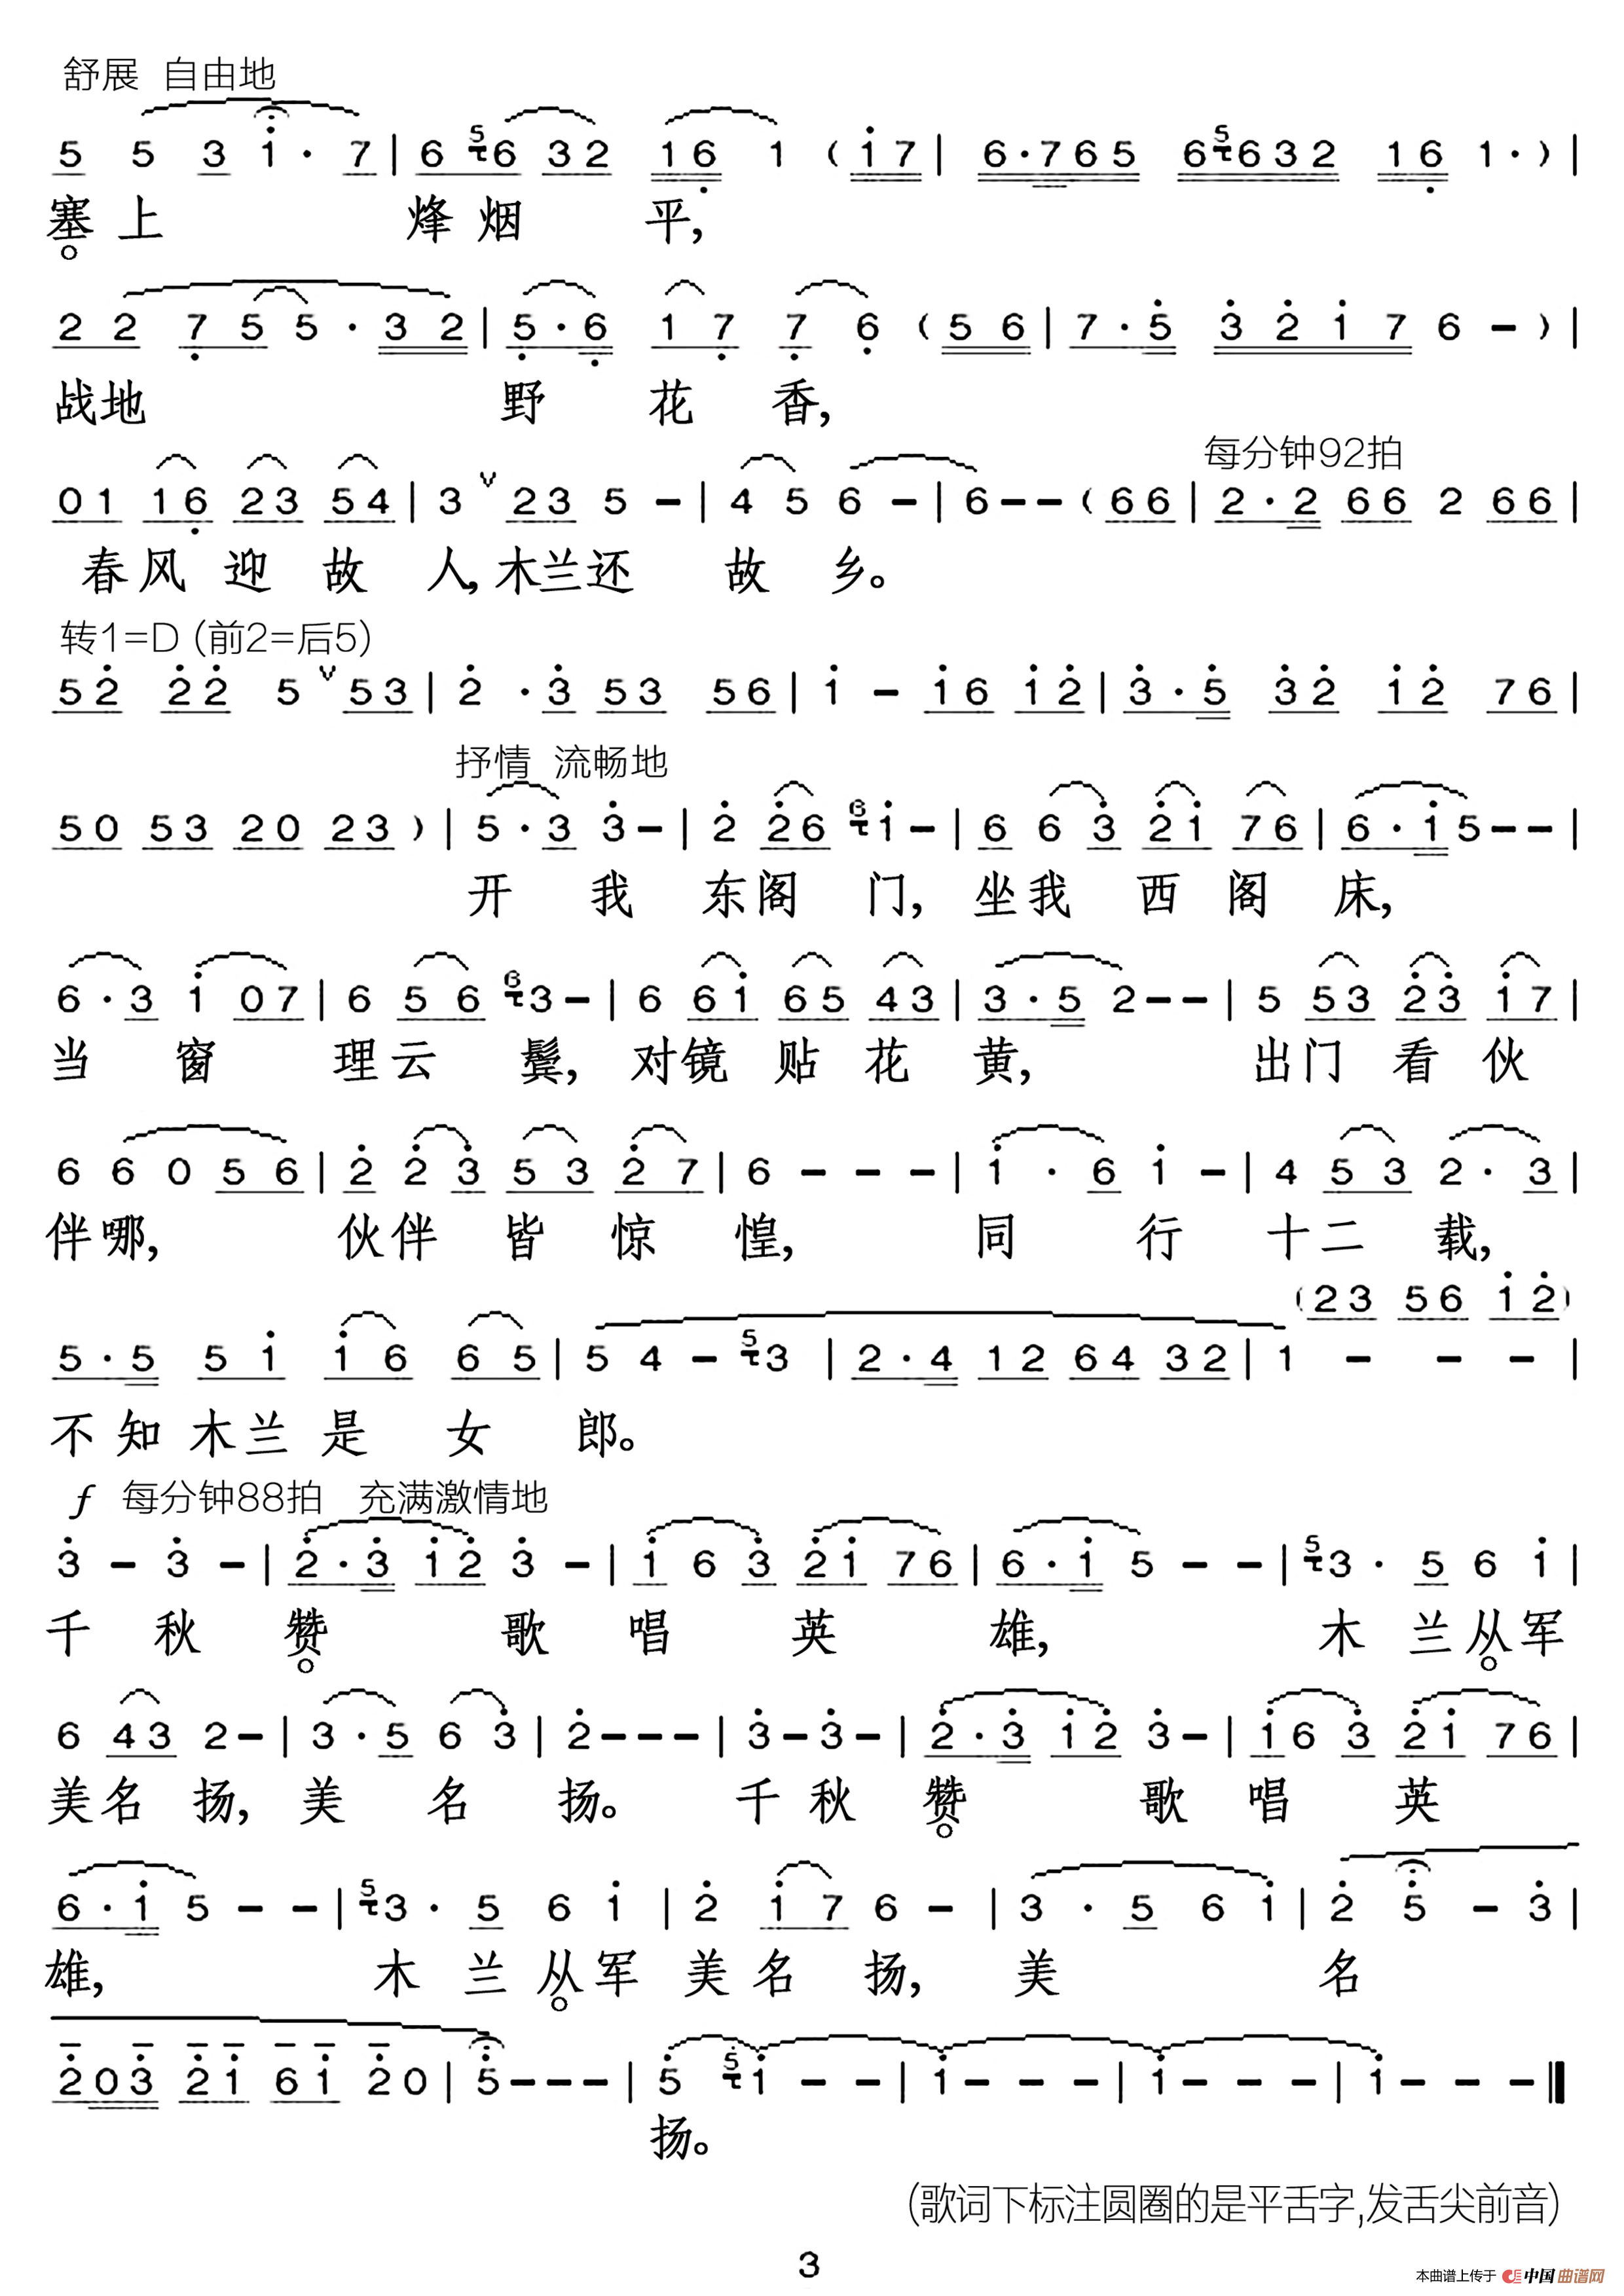 舒展 自由地
5 5 3 1̇· 7 | 6 5 6 3 2 1 6̣ 1 ( 1̇ 7 | 6·7 6 5 6 5 6 3 2 1 6̣ 1· ) |
塞 上 烽 烟 平,
2 2 7̣ 5 5· 3 2 | 5̣·6̣ 1 7̣ 7̣ 6̣ ( 5 6 | 7·5̇ 3̇ 2̇ 1̇ 7 6 – ) |
战地 野 花 香,
每分钟92拍
0 1 1 6̣ 2 3 5 4 | 3 ∨ 2 3 5 – | 4 5 6 – | 6 – – ( 6 6 | 2·2 6 6 2 6 6 |
春风 迎 故 人, 木兰还 故 乡。
转1=D (前2=后5)
5 2̇ 2̇ 2̇ 5 ∨ 5 3 | 2̇ ·3̇ 5 3 5 6 | 1̇ – 1̇ 6 1̇ 2̇ | 3̇·5̇ 3̇ 2̇ 1̇ 2̇ 7 6 |
抒情 流畅地
5 0 5 3 2 0 2 3 ) | 5·3 3̇ – | 2̇ 2̇ 6 6 1̇ – | 6 6 3̇ 2̇ 1̇ 7 6 | 6·1̇ 5 – – |
开 我 东阁 门, 坐我 西 阁 床,
6·3 1̇ 0 7 | 6 5 6 6 3 – | 6 6 1̇ 6 5 4 3 | 3·5 2 – – | 5 5 3 2̇ 3̇ 1̇ 7 |
当 窗 理云 鬓, 对镜 贴 花 黄, 出门 看 伙
6 6 0 5 6 | 2̇ 2̇ 3̇ 5 3 2̇ 7 | 6 – – – | 1̇ · 6 1̇ – | 4 5 3 2· 3 |
伴哪, 伙伴 皆 惊 惶, 同 行 十二 载,
( 2 3 5 6 1̇ 2̇ )
5·5 5 1̇ 1̇ 6 6 5 | 5 4 – 5 3 | 2·4 1 2 6 4 3 2 | 1 – – – |
不 知 木兰 是 女 郎。
f 每分钟88拍 充满激情地
3̇ – 3̇ – | 2̇·3̇ 1̇ 2̇ 3̇ – | 1̇ 6 3̇ 2̇ 1̇ 7 6 | 6·1̇ 5 – – | 5 3· 5 6 1̇ |
千 秋 赞 歌 唱 英 雄, 木 兰从军
6 4 3 2 – | 3·5 6 3̇ | 2̇ – – – | 3̇ – 3̇ – | 2̇·3̇ 1̇ 2̇ 3̇ – | 1̇ 6 3̇ 2̇ 1̇ 7 6 |
美名 扬, 美 名 扬。 千 秋 赞 歌 唱 英
6·1̇ 5 – – | 5 3· 5 6 1̇ | 2̇ 1̇ 7 6 – | 3 · 5 6 1̇ | 2̇ 5̇ – 3̇ |
雄, 木 兰 从军 美名 扬, 美 名
2̇ 0 3̇ 2̇ 1̇ 6 1̇ 2̇ 0 | 5̇ – – – | 5̇ 5̇ 1̇ – – | 1̇ – – – | 1̇ – – – | 1̇ – – – ‖
扬。
(歌词下标注圆圈的是平舌字,发舌尖前音)
3
本曲谱上传于 中国曲谱网